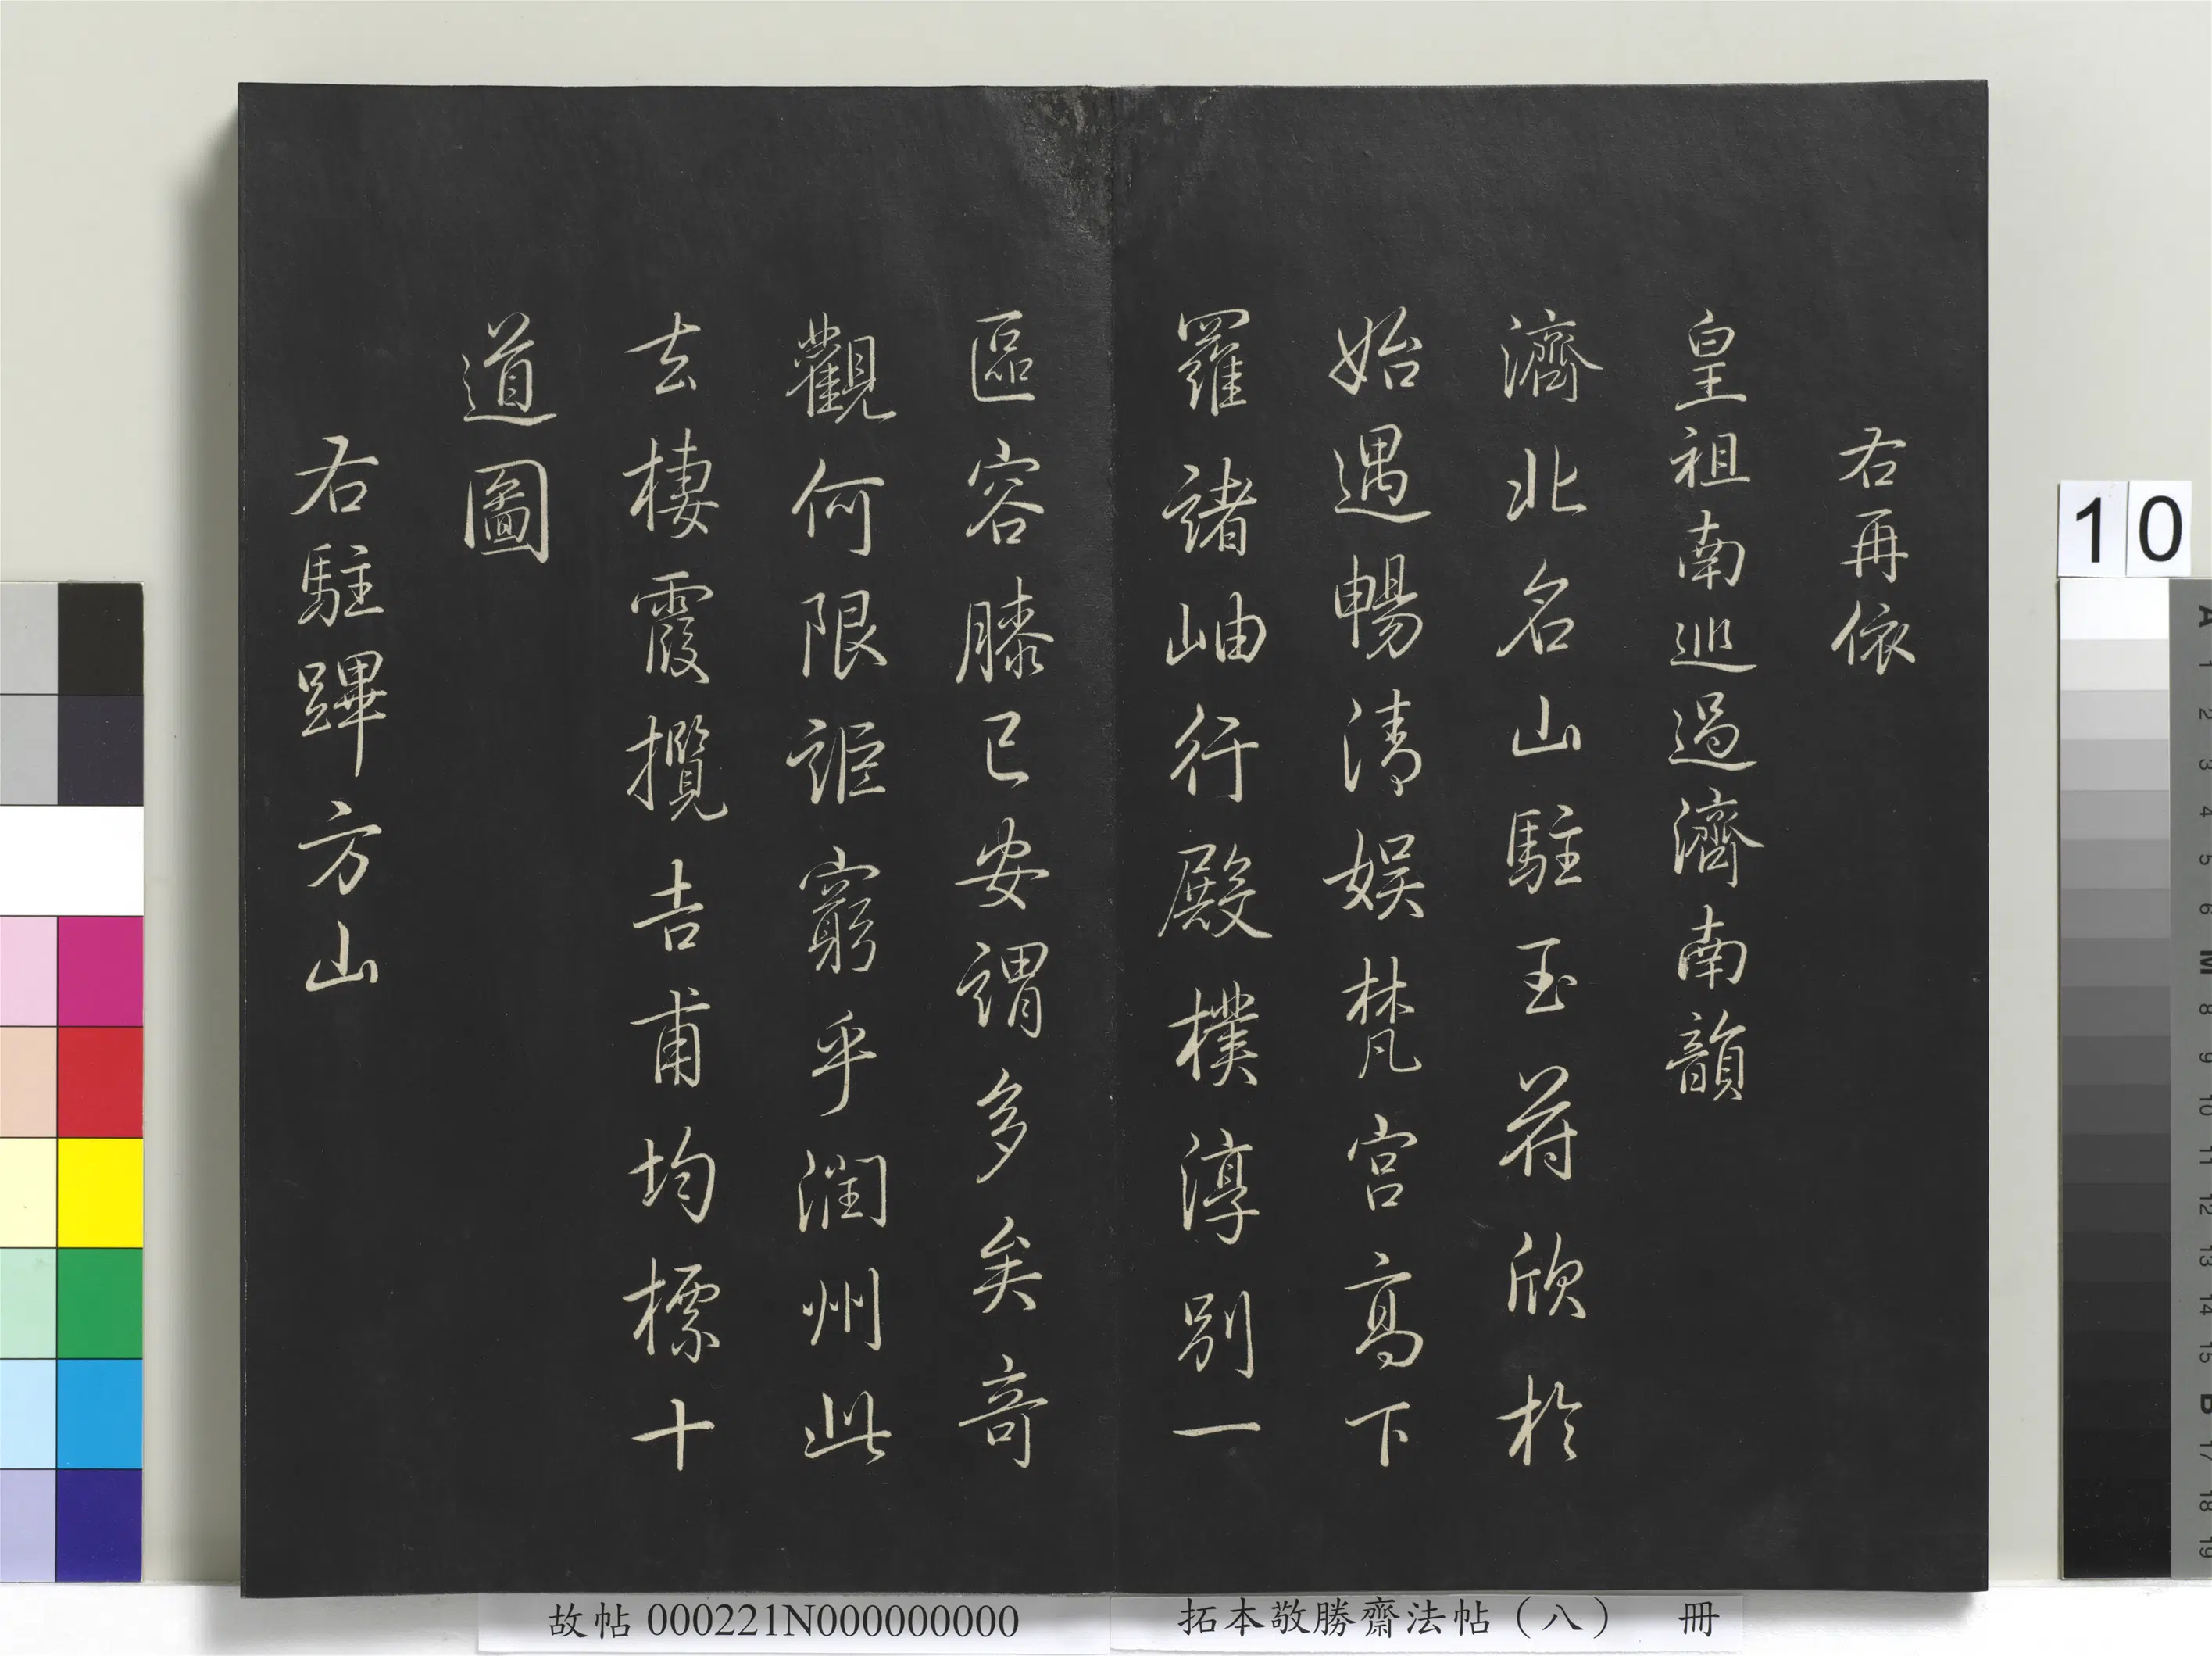 右再依
皇祖南巡過濟南韻
濟北名山駐玉符欣於
始遇暢清娛梵宮高下
羅諸岫行殿樸淳別一
區容膝已安謂多矣奇
觀何限詎窮乎潤州此
去棲霞攬吉甫均標十
道圖
右駐蹕方山
故帖 000221N000000000
拓本敬勝齋法帖（八） 冊
10
A
1
2
3
4
5
6
M
8
9
10
11
12
13
14
15
B
17
18
19